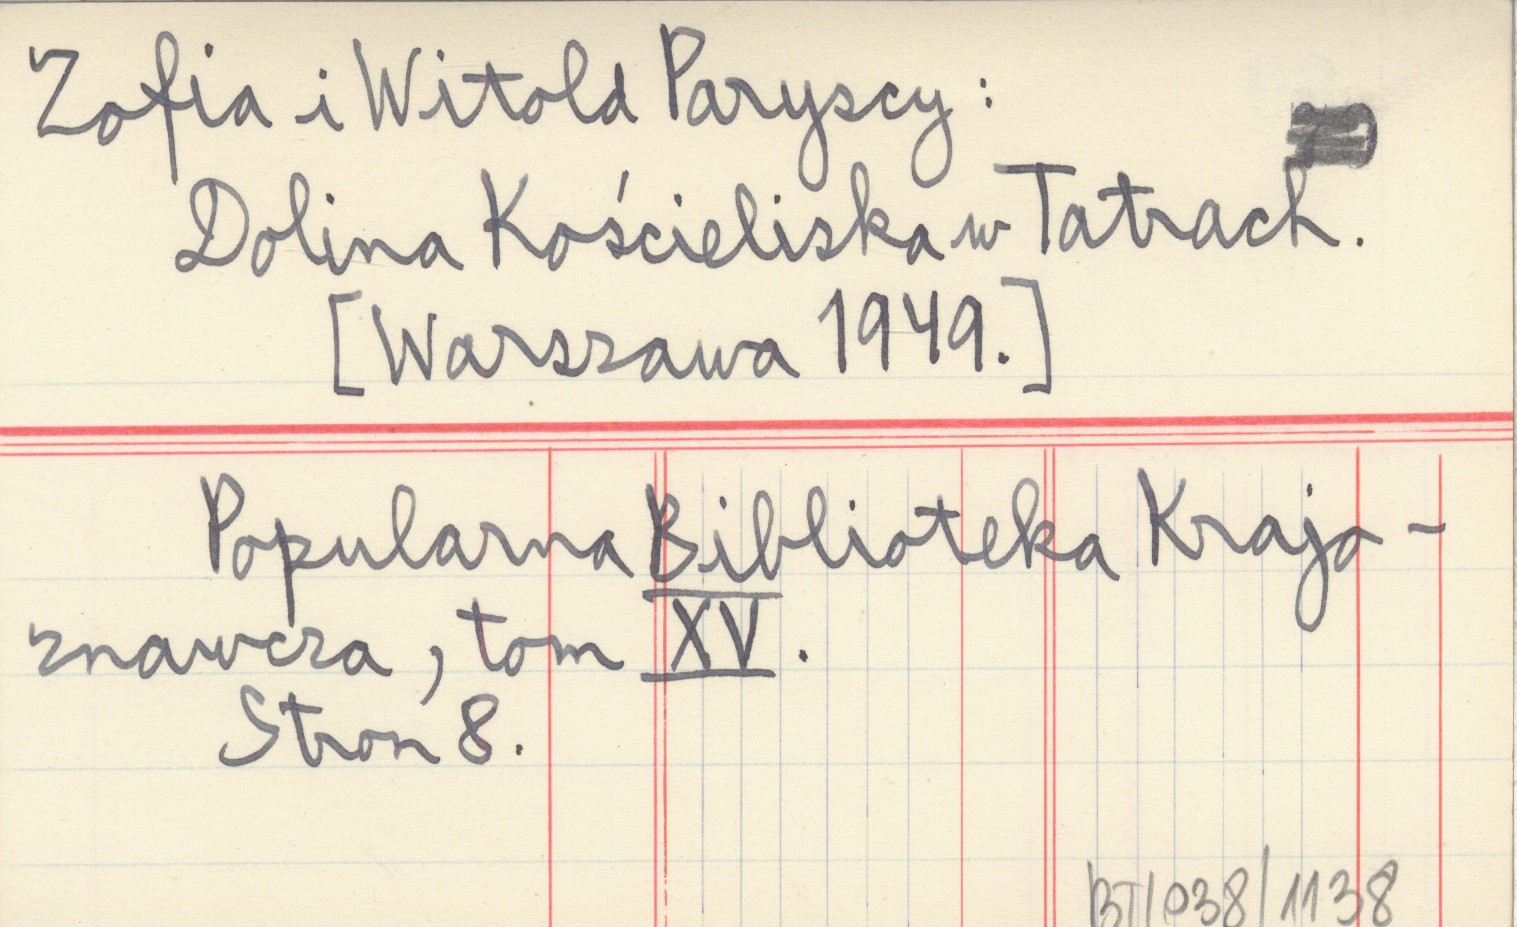 Zofia i Witold Paryscy:
Dolina Kościeliska w Tatrach.
[Warszawa 1949.]
Popularna Biblioteka Krajo-
znawcza, tom XV.
Stron 8.
BT/038/1138